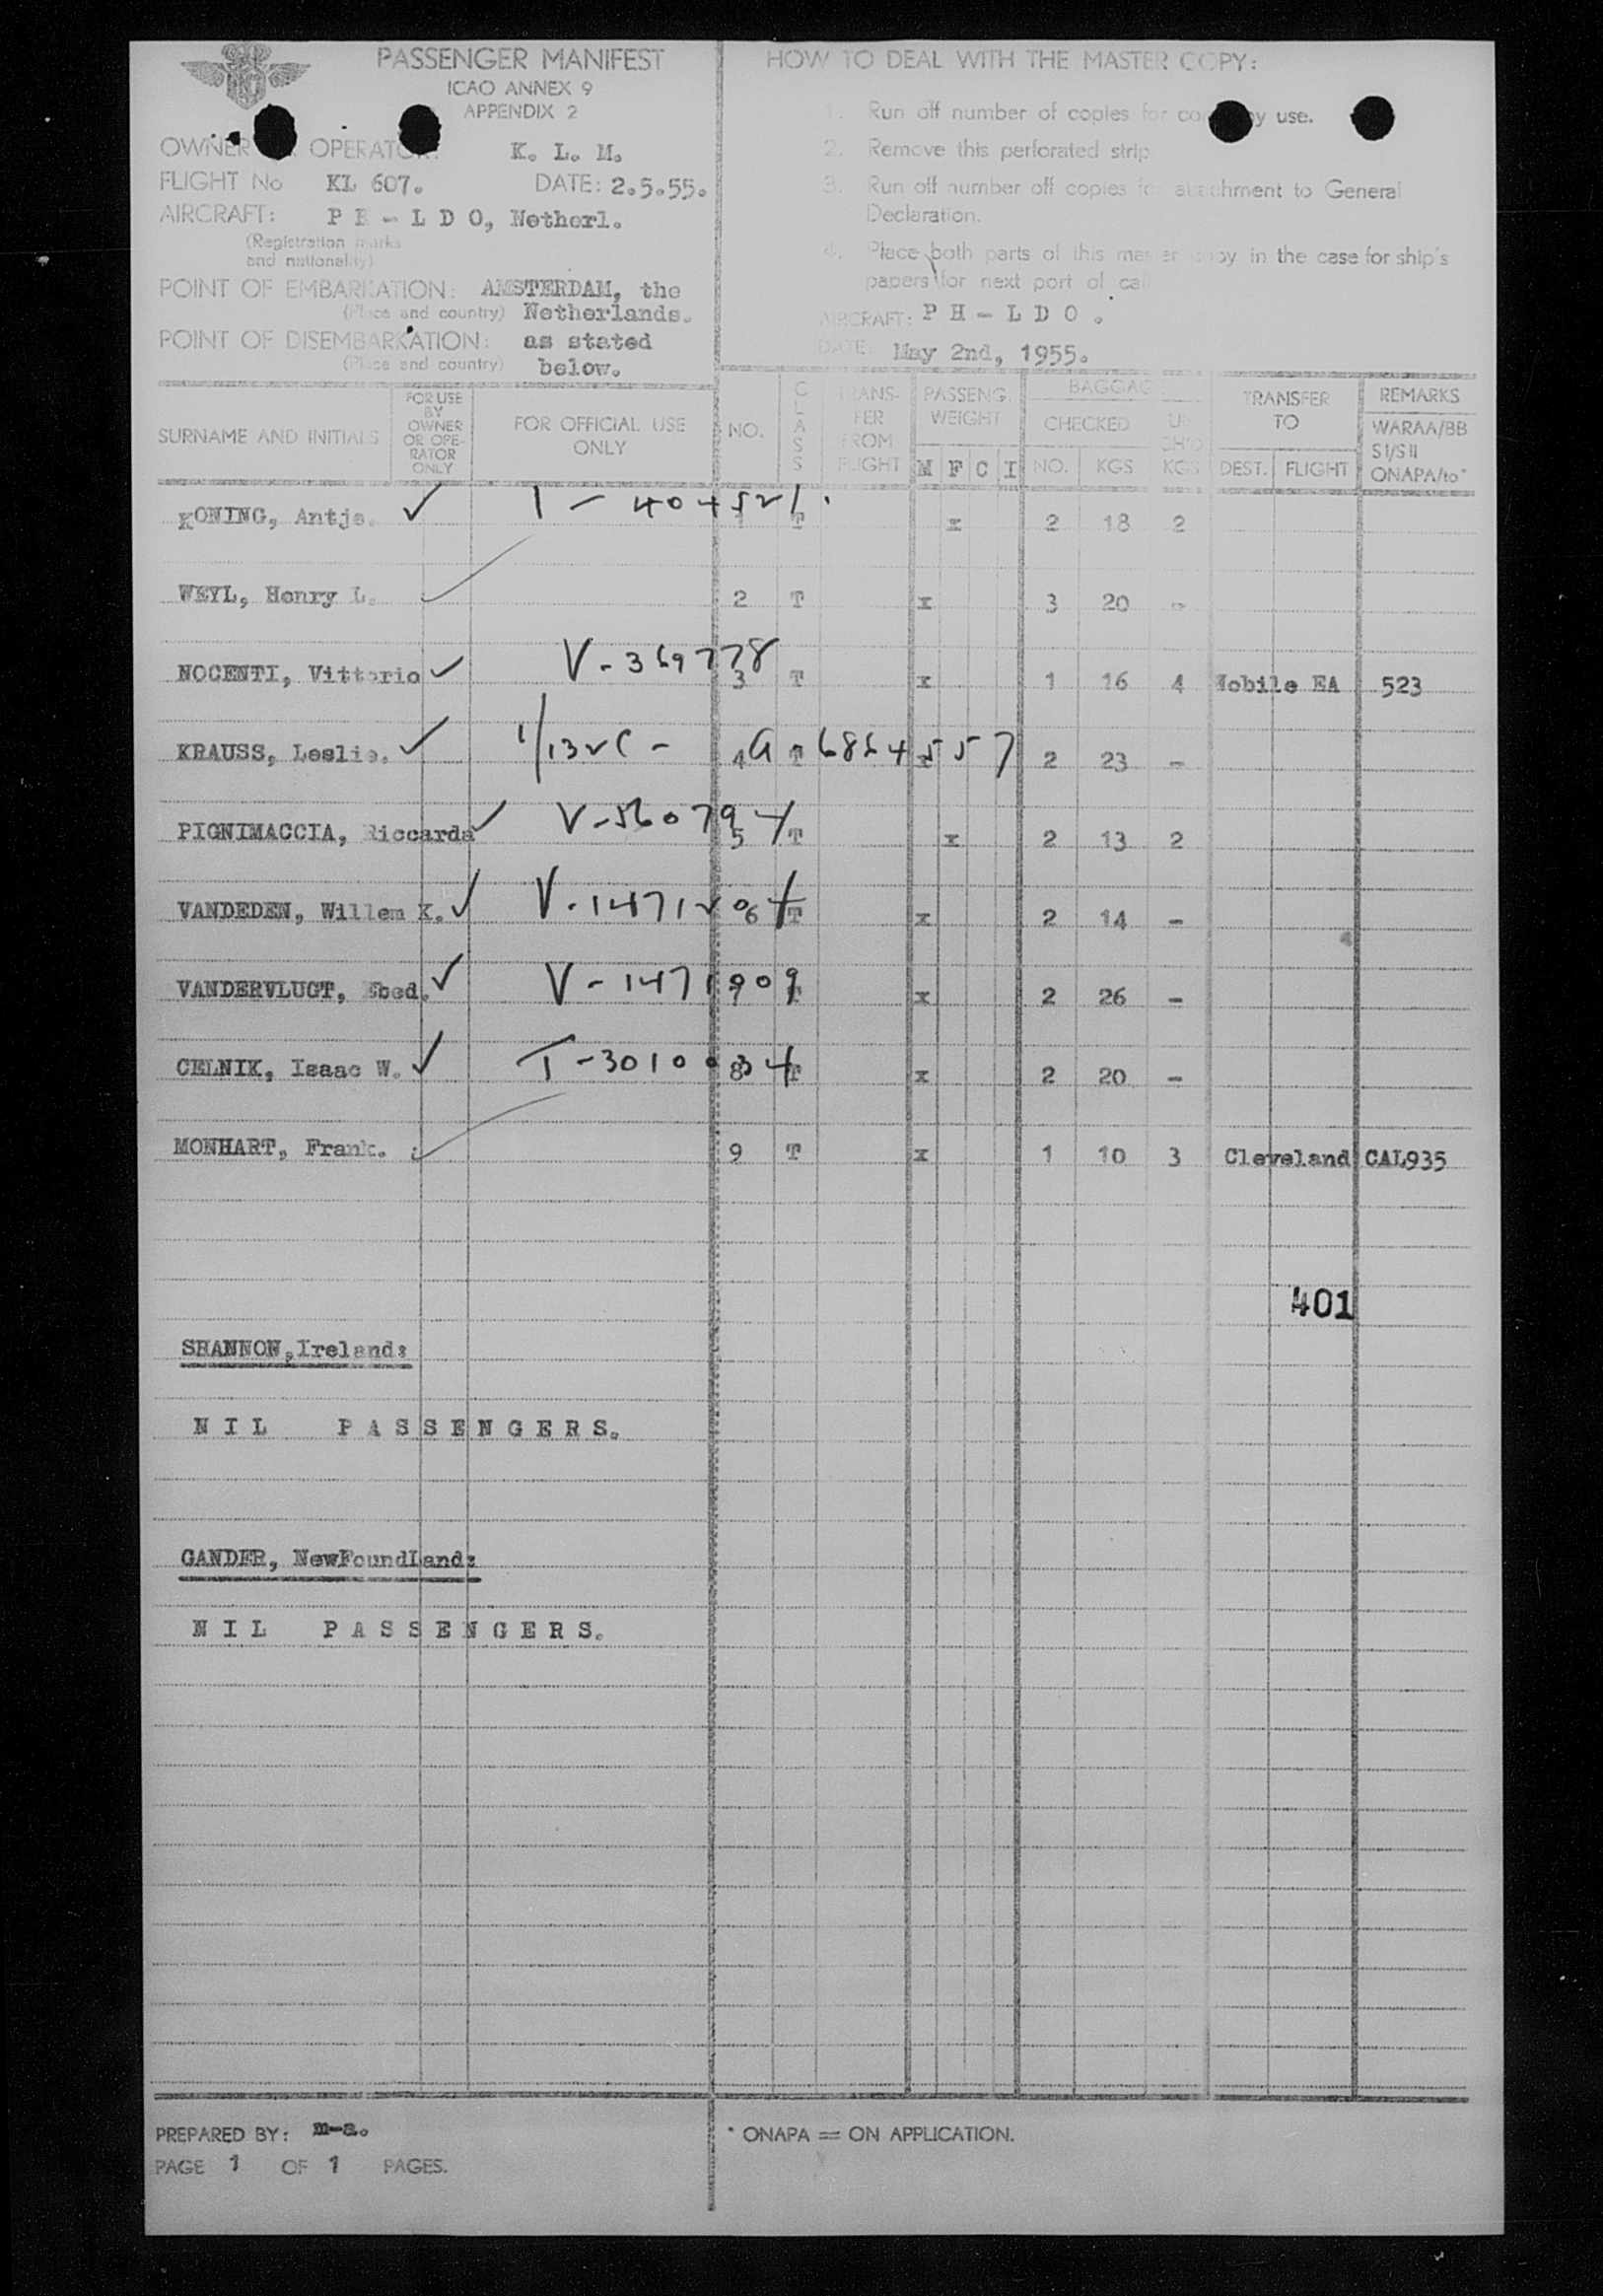 PASSENGER MANIFEST
ICAO ANNEX 9
APPENDIX 2
OWNER OPERATOR: K. L. M.
FLIGHT No KL 607. DATE: 2.5.55.
AIRCRAFT: P H - L D O, Netherl.
(Registration marks
and nationality)
POINT OF EMBARKATION: AMSTERDAM, the
(Place and country) Netherlands.
POINT OF DISEMBARKATION: as stated
(Place and country) below.
HOW TO DEAL WITH THE MASTER COPY:
1. Run off number of copies for company use.
2. Remove this perforated strip
3. Run off number off copies for attachment to General
Declaration.
4. Place both parts of this master copy in the case for ship's
papers for next port of call
AIRCRAFT: P H - L D O .
DATE: May 2nd, 1955.
SURNAME AND INITIALS
FOR USE
BY
OWNER
OR OPE-
RATOR
ONLY
FOR OFFICIAL USE
ONLY
NO.
CLASS
TRANS-
FER
FROM
FLIGHT
PASSENG.
WEIGHT
M F C I
BAGGAGE
CHECKED
NO. KGS
UN
CH'D
KGS
TRANSFER
TO
DEST. FLIGHT
REMARKS
WARAA/BB
SI/SII
ONAPA/to*
KONING, Antje. T x 2 18 2
WEYL, Henry L. 2 T x 3 20 -
NOCENTI, Vittorio V-369778 3 T x 1 16 4 Mobile EA 523
KRAUSS, Leslie. 4 T x 2 23 -
PIGNIMACCIA, Riccarda V-560794 5 T x 2 13 2
VANDEDEN, Willem K. V-1471204 6 T x 2 14 -
VANDERVLUGT, V-1471909 T x 2 26 -
CELNIK, Isaac W. T-3010034 8 T x 2 20 -
MONHART, Frank. 9 T x 1 10 3 Cleveland CAL935
401
SHANNON,Ireland:
N I L P A S S E N G E R S.
GANDER, NewFoundLand:
N I L P A S S E N G E R S.
PREPARED BY: m-a.
PAGE 1 OF 1 PAGES.
* ONAPA = ON APPLICATION.